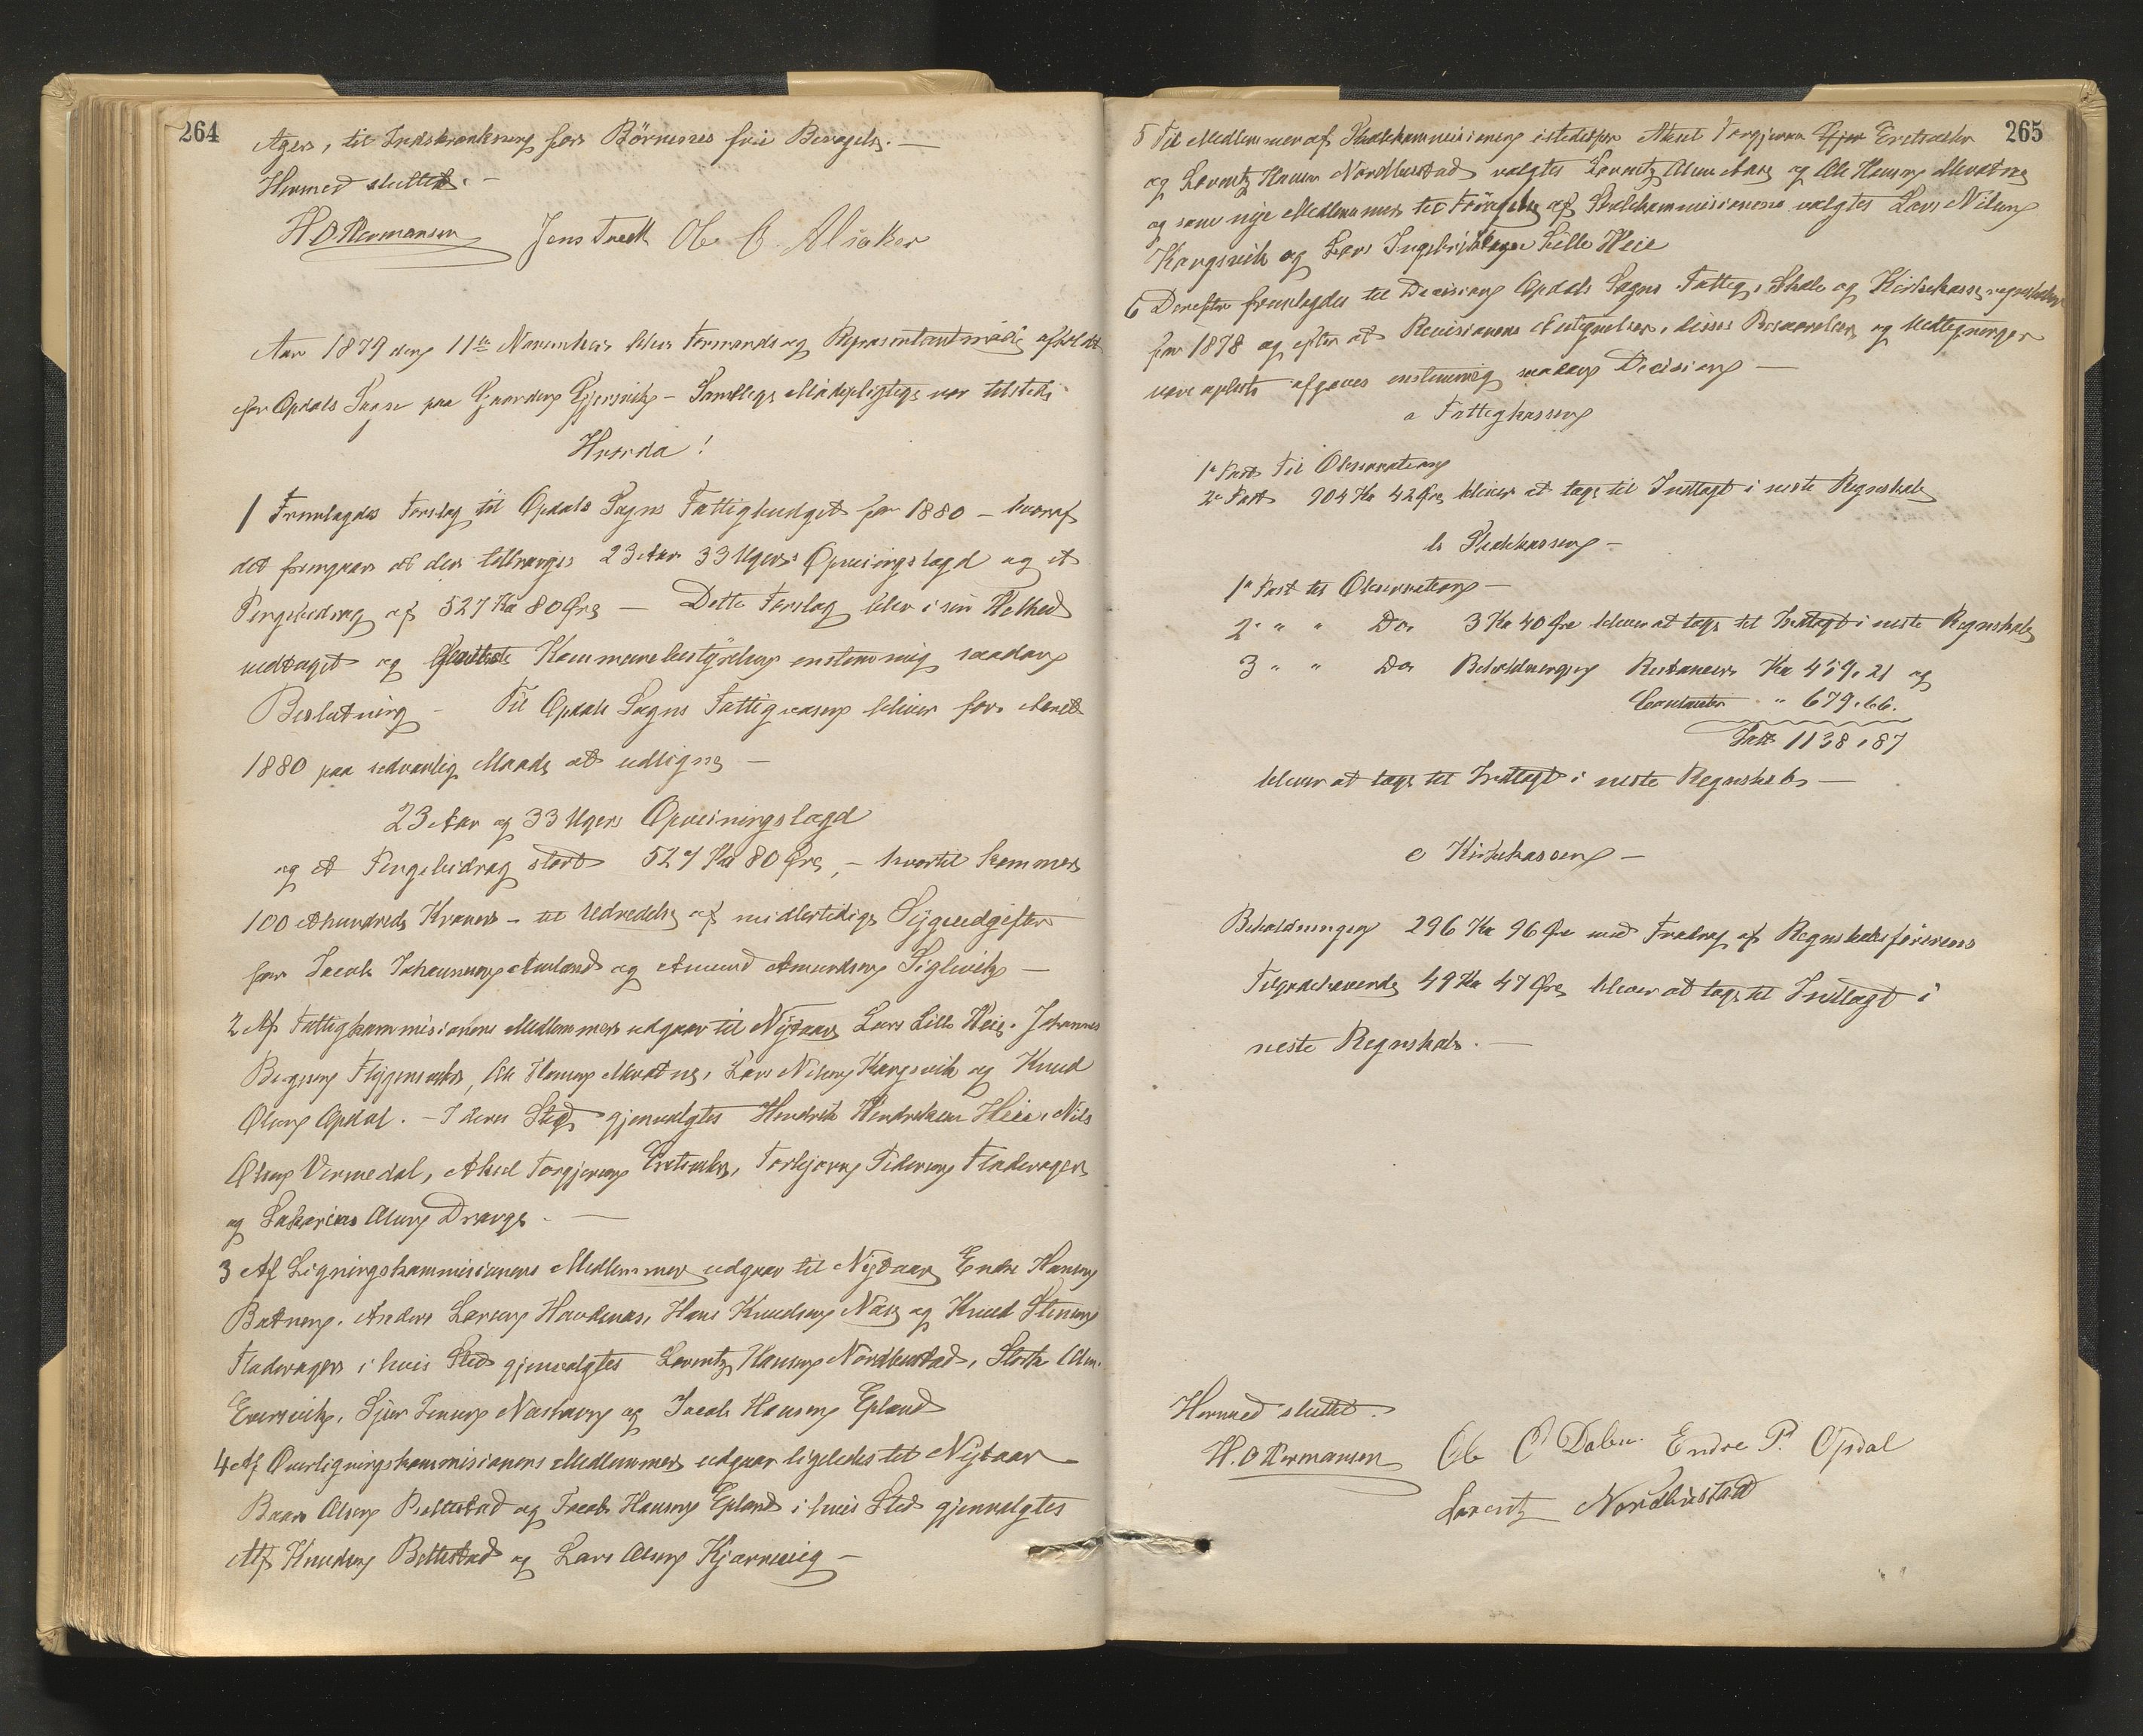 264
Ager, til Indskrænkning for Börnenes frie Bevægelse. —
Hermed sluttet. —
H O Hermansen Jens Tveit Ole O. Alsaker
Aar 1879 den 11te November blev Formands og Repræsentantmøde afholdt
for Opdals Sogn paa Gaarden Gjersvik – Samtlige Mödepligtige var tilstede
Hvorda!
1 Fremlagdes Forslag til Opdals Sogns Fattigbudget for 1880 – hvoraf
det fremgaar at der tiltrænges 23 Aar 33 Ugers Opveiningslægd og et
Pengebidrag af 527 Kr 80 Öre — Dette Forslag blev i sin Helhed
vedtaget og Kommunebestyrelsen enstemmig saadan
Beslutning – Til Opdals Sogns Fattigvæsen bliver for Aaret
1880 paa sædvanlig Maade at udligne —
23 Aar og 33 Ugers Opveiningslægd
og et Pengebidrag stort 527 Kr 80 Öre, – hvortil kommer
100 Ethundrede Kroner – til Udredelse af midlertidige Sygeudgifter
for Jacob Johannesen Aurland og Amund Amundsen Siglevik —
2 Af Fattigkommisionens Medlemmer udgaar til Nytaar Lars Lille Heie. Johannes
Flygensvær, Ole Hansen Mvatne, Lars Nilsen Kongsvik og Knud
Olsen Opdal. – I deres Sted gjenvalgtes Hendrik Hendriksen Heie, Nils
Olsen Vermedal, Aksel Torgjersen Eretsvær, Torbjörn Pedersen Fladerager
og Sakarias Olsen Drange. —
3 Af Ligningskommisionens Medlemmer udgaar til Nytaar Endre Hansen
Batnene. Anders Larsen Haukenæs, Hans Knudsen Næs og Knud Stensen
Fladerager i hvis Sted gjenvalgtes Lorentz Hansen Nordhustad, Olsen
Eversvik, Sjur Jensen Næshavn og Jacob Hansen Epland
4 Af Overligningskommisionens Medlemmer udgaar ligeledes til Nytaar
Baar Olsen Bættestad og Jacob Hansen Epland i hvis Sted gjenvalgtes
Alf Knudsen Bættestad og Lars Olsen Kjærnevig —
265
5 Til Medlemmer af Skolekommissionen istedetfor Aksel Torgjersen Eretsvær
og Lorentz Hansen Nordhustad valgtes Lorentz Olsen Aare og Ole Hansen Mvatne
og som nye Medlemmer til Forögelse af Skolekommisionene valgtes Lars Nilsen
Kongsvik og Lars Ingebrigtsen Lille Heie
6 Derefter fremlagdes til Decision Opdals Sogns Fattig, Skole og Kirkekasseregnskaber
for 1878 og efter at Revisionens Antegnelser, disses Besvarelser og Vedtegninger
vare oplæste afgaves enstemmig saadan Decision —
a Fattigkassen
1e Post Til Observation
2e Post 904 Kr 42 Öre bliver at tage til Indtægt i neste Regnskab
b Skolekassen –
1e Post til Observation –
2e " " Do 3 Kr 40 Öre bliver at tage til Indtægt i neste Regnskab
3 " " Do Beholdningen Restancer Kr 459. 21 og
Contanter " 679. 66.
Ialt 1138. 87
bliver at tage til Indtægt i neste Regnskab —
c Kirkekassen –
Beholdningen 296 Kr 96 Öre med Fradrag af Regnskabsförerens
Tilgodehavende 49 Kr 47 Öre bliver at tage til Indtægt i
neste Regnskab. —
Hermed sluttet.
H. O Hermansen Ole O Dalen. Endre P. Opdal
Lorentz Nordhustad